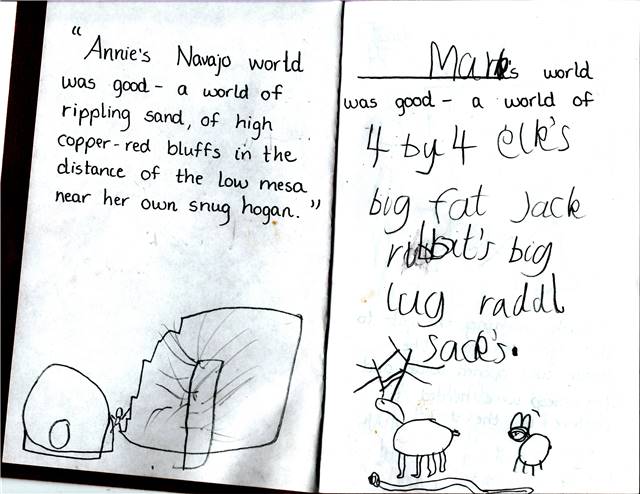 "Annie's Navajo world
was good - a world of
rippling sand, of high
copper-red bluffs in the
distance of the low mesa
near her own snug hogan."
Mark's world
was good - a world of
4 by 4 elk's
big fat Jack
rabbit's big
lug raddl
sack's.